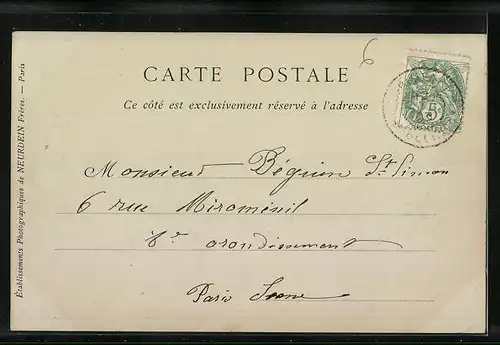 6
CARTE POSTALE
Ce côté est exclusivement réservé à l'adresse
5
Monsieur Béguin St Simon
6 rue Miroménil
8e arondissement
Paris Seine
Établissements Photographiques de NEURDEIN Frères. — Paris